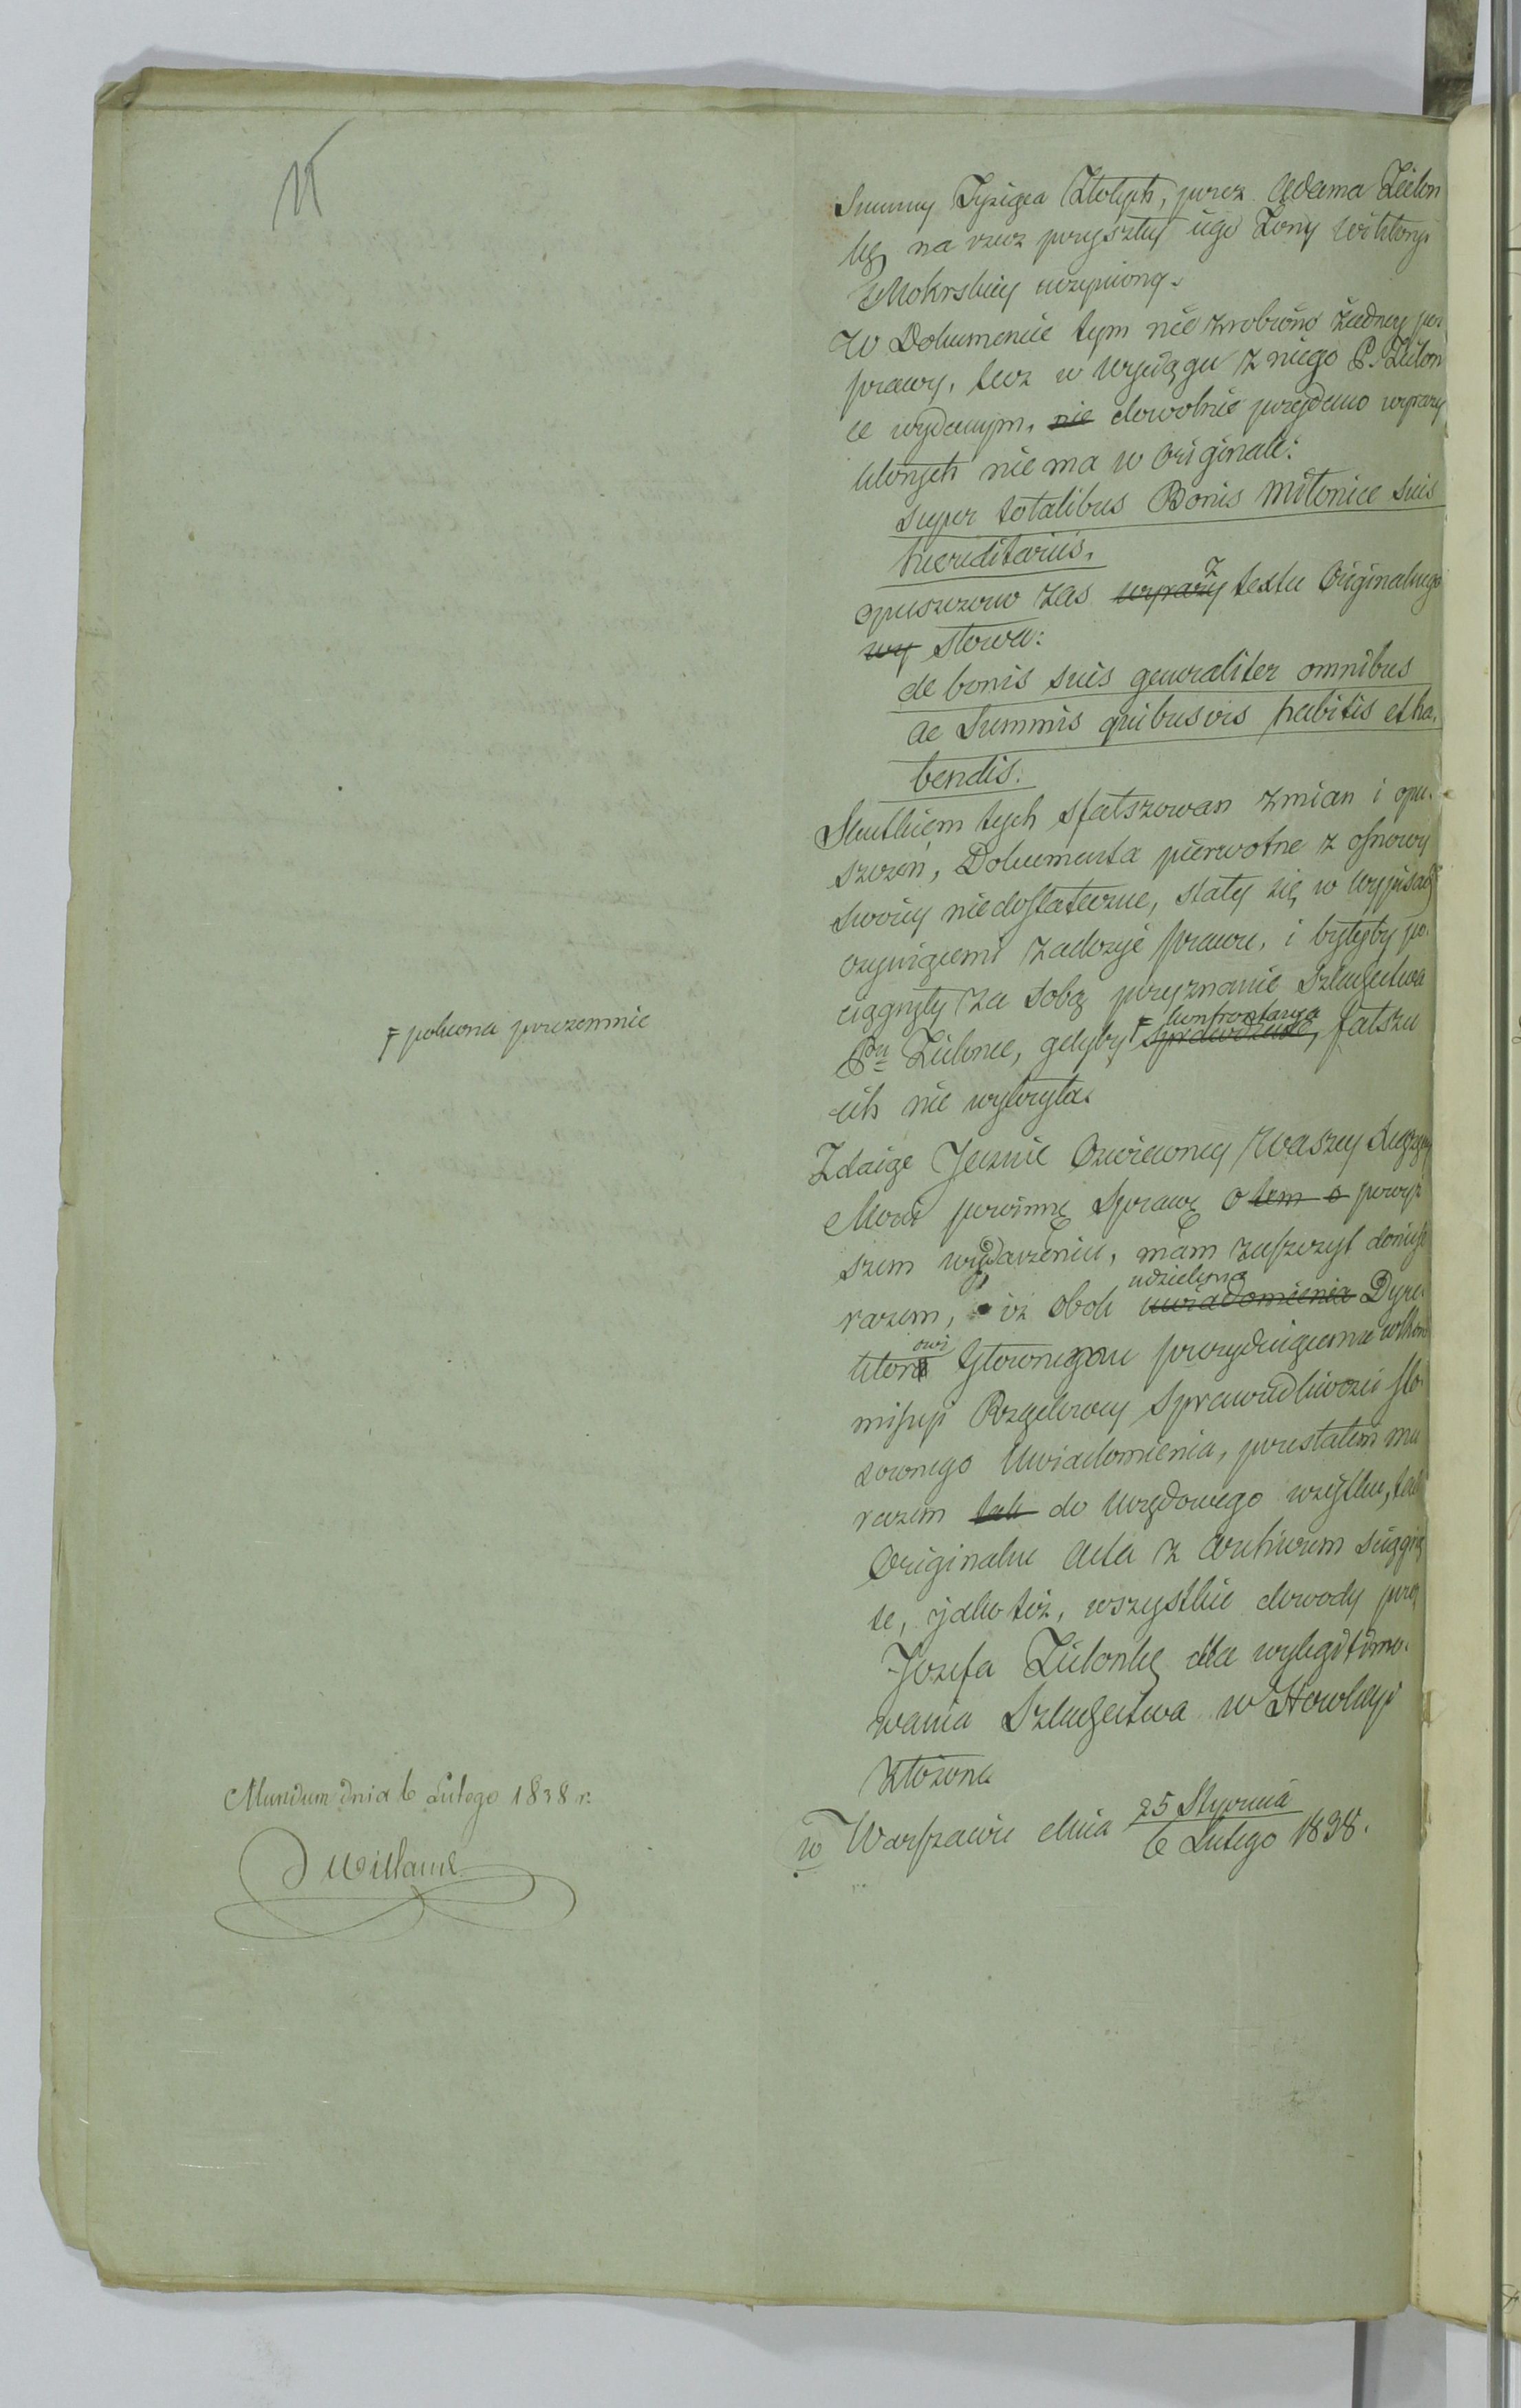 Summy Tysiąca Złotych, przez Adama Zielon
kę na rzecz przyszłey iego Żony Wiktoryi
Mokrskiey uczynioną.
W Dokumencie tym nie zrobiono żadney po
prawy, lecz w wyciągu z niego P. Zielon
ce wydanym, nie dowolnie przydano wyrazy
których nie ma w Originale:
super totalibus Bonis Mitonice suis
haereditariis.
opuszczono zas wyrazy z textu Originalnego
wy słowa:
de bonis suis generaliter omnibus
ac Summis quibusvis habitis et ha.
bendis.
Skutkiem tych sfałszowan zmian i opu.
szczeń, Dokumenta pierwotne z osnowy
swoiey niedostateczne, stały się w wypisach
czyniącemi zadosyć prawu, i byłyby po.
ciągnęły za sobą przyznanie Szlachectwa
Pu Zielonce, gdyby sprawdzenie, ⊧ konfrontacya fałszu
ich nie wykryła.
⊧ polecona przezemnie
Zdaiąc Jaśnie Oświeconey Waszey Xiążęcey
Mości powinną Sprawę o tem o powyż
szem wydarzeniu, mam zaszczyt donieść
razem, iż obok uwiadomienia udzielonego Dyre
ktorowi Głownemu prezyduiącemu w Kom
missyi Rządowey Sprawiedliwości sto
sownego Uwiadomienia, przesłałem mu
razem tak do Urzędowego użytku, tak
Originalne Akta z Archiwum ściągnię
te, jako też, wszystkie dowody przez
Jozefa Zielonkę dla wylegitimo.
wania Szlachectwa w Heroldyi
złożone
w Warszawie dnia 25 Stycznia
6 Lutego 1838.
Mundum dnia 6 Lutego 1838 r.